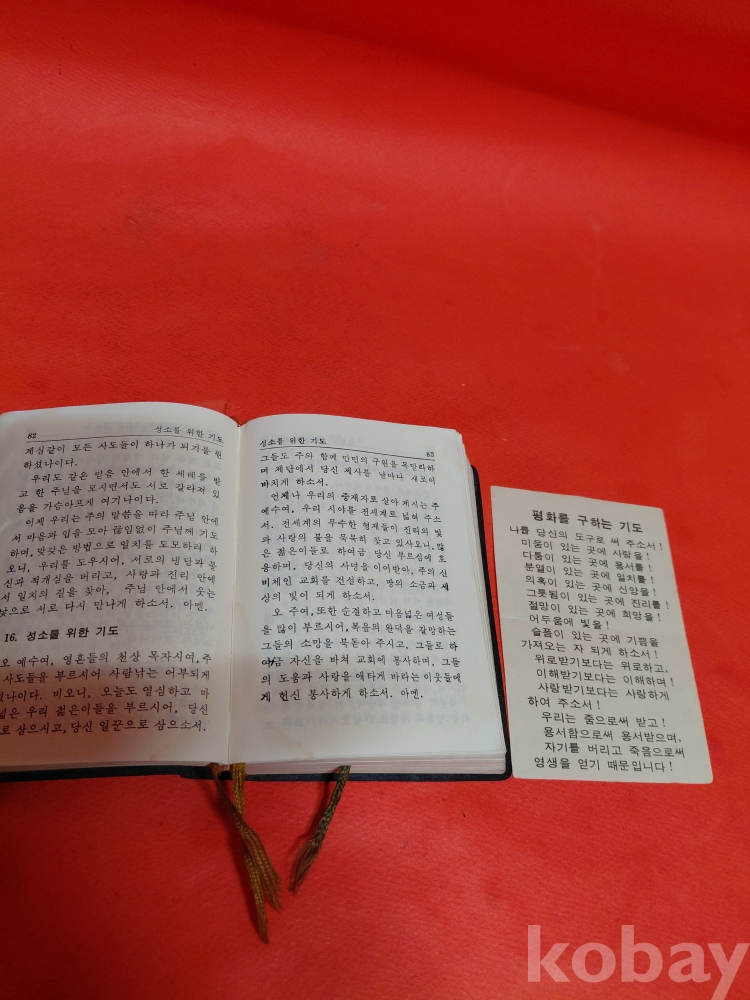 82
성소를 위한 기도
계심같이 모든 사도들이 하나가 되기를 원
하셨나이다.
우리도 같은 믿음 안에서 한 세례를 받
고 한 주님을 모시면서도 서로 갈라져 있
음을 가슴아프게 여기나이다.
이제 우리는 주의 말씀을 따라 주님 안에
서 마음과 입을 모아 끊임없이 주님께 기도
하며, 맞갖은 방법으로 일치를 도모하려 하
오니, 우리를 도우시어, 서로의 냉담과 불
신과 적개심을 버리고, 사랑과 진리 안에
서 일치의 길을 찾아, 주님 안에서 웃는
낯으로 서로 다시 만나게 하소서. 아멘.
16. 성소를 위한 기도
오 예수여, 영혼들의 천상 목자시여, 주
사도들을 부르시어 사람낚는 어부되게
셨나이다. 비오니, 오늘도 열심하고 마
넓은 우리 젊은이들을 부르시어, 당신
로 삼으시고, 당신 일꾼으로 삼으소서.
성소를 위한 기도
83
그들도 주와 함께 만민의 구원을 목말라하
며 제단에서 당신 제사를 날마다 새로이
바치게 하소서.
언제나 우리의 중재자로 살아 계시는 주
예수여, 우리 시야를 전세계로 넓혀 주소
서. 전세계의 무수한 형제들이 진리의 빛
과 사랑의 불을 묵묵히 찾고 있사오니, 많
은 젊은이들로 하여금 당신 부르심에 호
응하며, 당신의 사명을 이어받아, 주의 신
비체인 교회를 건설하고, 땅의 소금과 세
상의 빛이 되게 하소서.
오 주여, 또한 순결하고 마음넓은 여성들
을 많이 부르시어, 복음의 완덕을 갈망하는
그들의 소망을 북돋아 주시고, 그들로 하
여금 자신을 바쳐 교회에 봉사하며, 그들
의 도움과 사랑을 애타게 바라는 이웃들에
게 헌신 봉사하게 하소서. 아멘.
평화를 구하는 기도
나를 당신의 도구로 써 주소서!
미움이 있는 곳에 사랑을!
다툼이 있는 곳에 용서를!
분열이 있는 곳에 일치를!
의혹이 있는 곳에 신앙을!
그릇됨이 있는 곳에 진리를!
절망이 있는 곳에 희망을!
어두움에 빛을!
슬픔이 있는 곳에 기쁨을
가져오는 자 되게 하소서!
위로받기보다는 위로하고,
이해받기보다는 이해하며!
사랑받기보다는 사랑하게
하여 주소서!
우리는 줌으로써 받고!
용서함으로써 용서받으며,
자기를 버리고 죽음으로써
영생을 얻기 때문입니다!
kobay